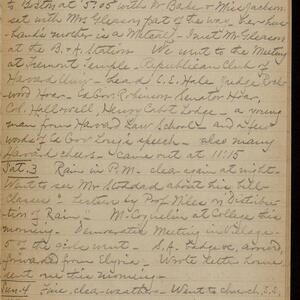 to Boston at 5.05 with Mr Baker & Miss Jackson
went with Mrs Gleason part of the way. her hus-
band's mother is a Metcalf - I met Mr Gleason
at the B. & A. Station We went to the Meeting
at Tremont Temple - Republican Club of
Harvard Univ - heard E. S. Hale Judge Rock-
wood Hoar, Ed Gov. Robinson Senator Hoar,
Col. Hallowell Henry Cabot Lodge - a young
man from Harvard Law School - and a few
words of Ex Gov Long's speech - also many
Harvard cheers - came out at 11:15
Sat. 3 Rain in P.M. clear again at night.
Went to see Mr Stoddard about his
Classes - Lecture by Prof Niles on Distribu-
tion of Rain - at College this
morning. Democratic Meeting in Village -
5 of the girls went. S.A.
forwarded from Elyria - Wrote letter home
sent one this morning -
Sun. 4 Fine, clear weather. Went to church, S.S.